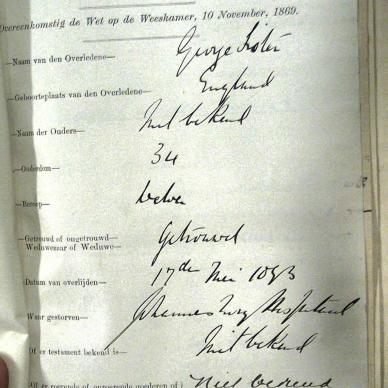 Overeenkomstig de Wet op de Weeskamer, 10 November, 1869.
—Naam van den Overledene— George
—Geboorteplaats van den Overledene— England
—Naam der Ouders— Niet bekend
—Ouderdom— 34
—Beroep—
—Getrouwd of ongetrouwd— Getrouwd
Weduwenaar of Weduwe—
—Datum van overlijden— 17de Mei 1893
—Waar gestorven— Johannesburg Hospitaal
—Of er testament bekend is— Niet bekend
—Of er roerende of onroerende goederen of Niet bekend